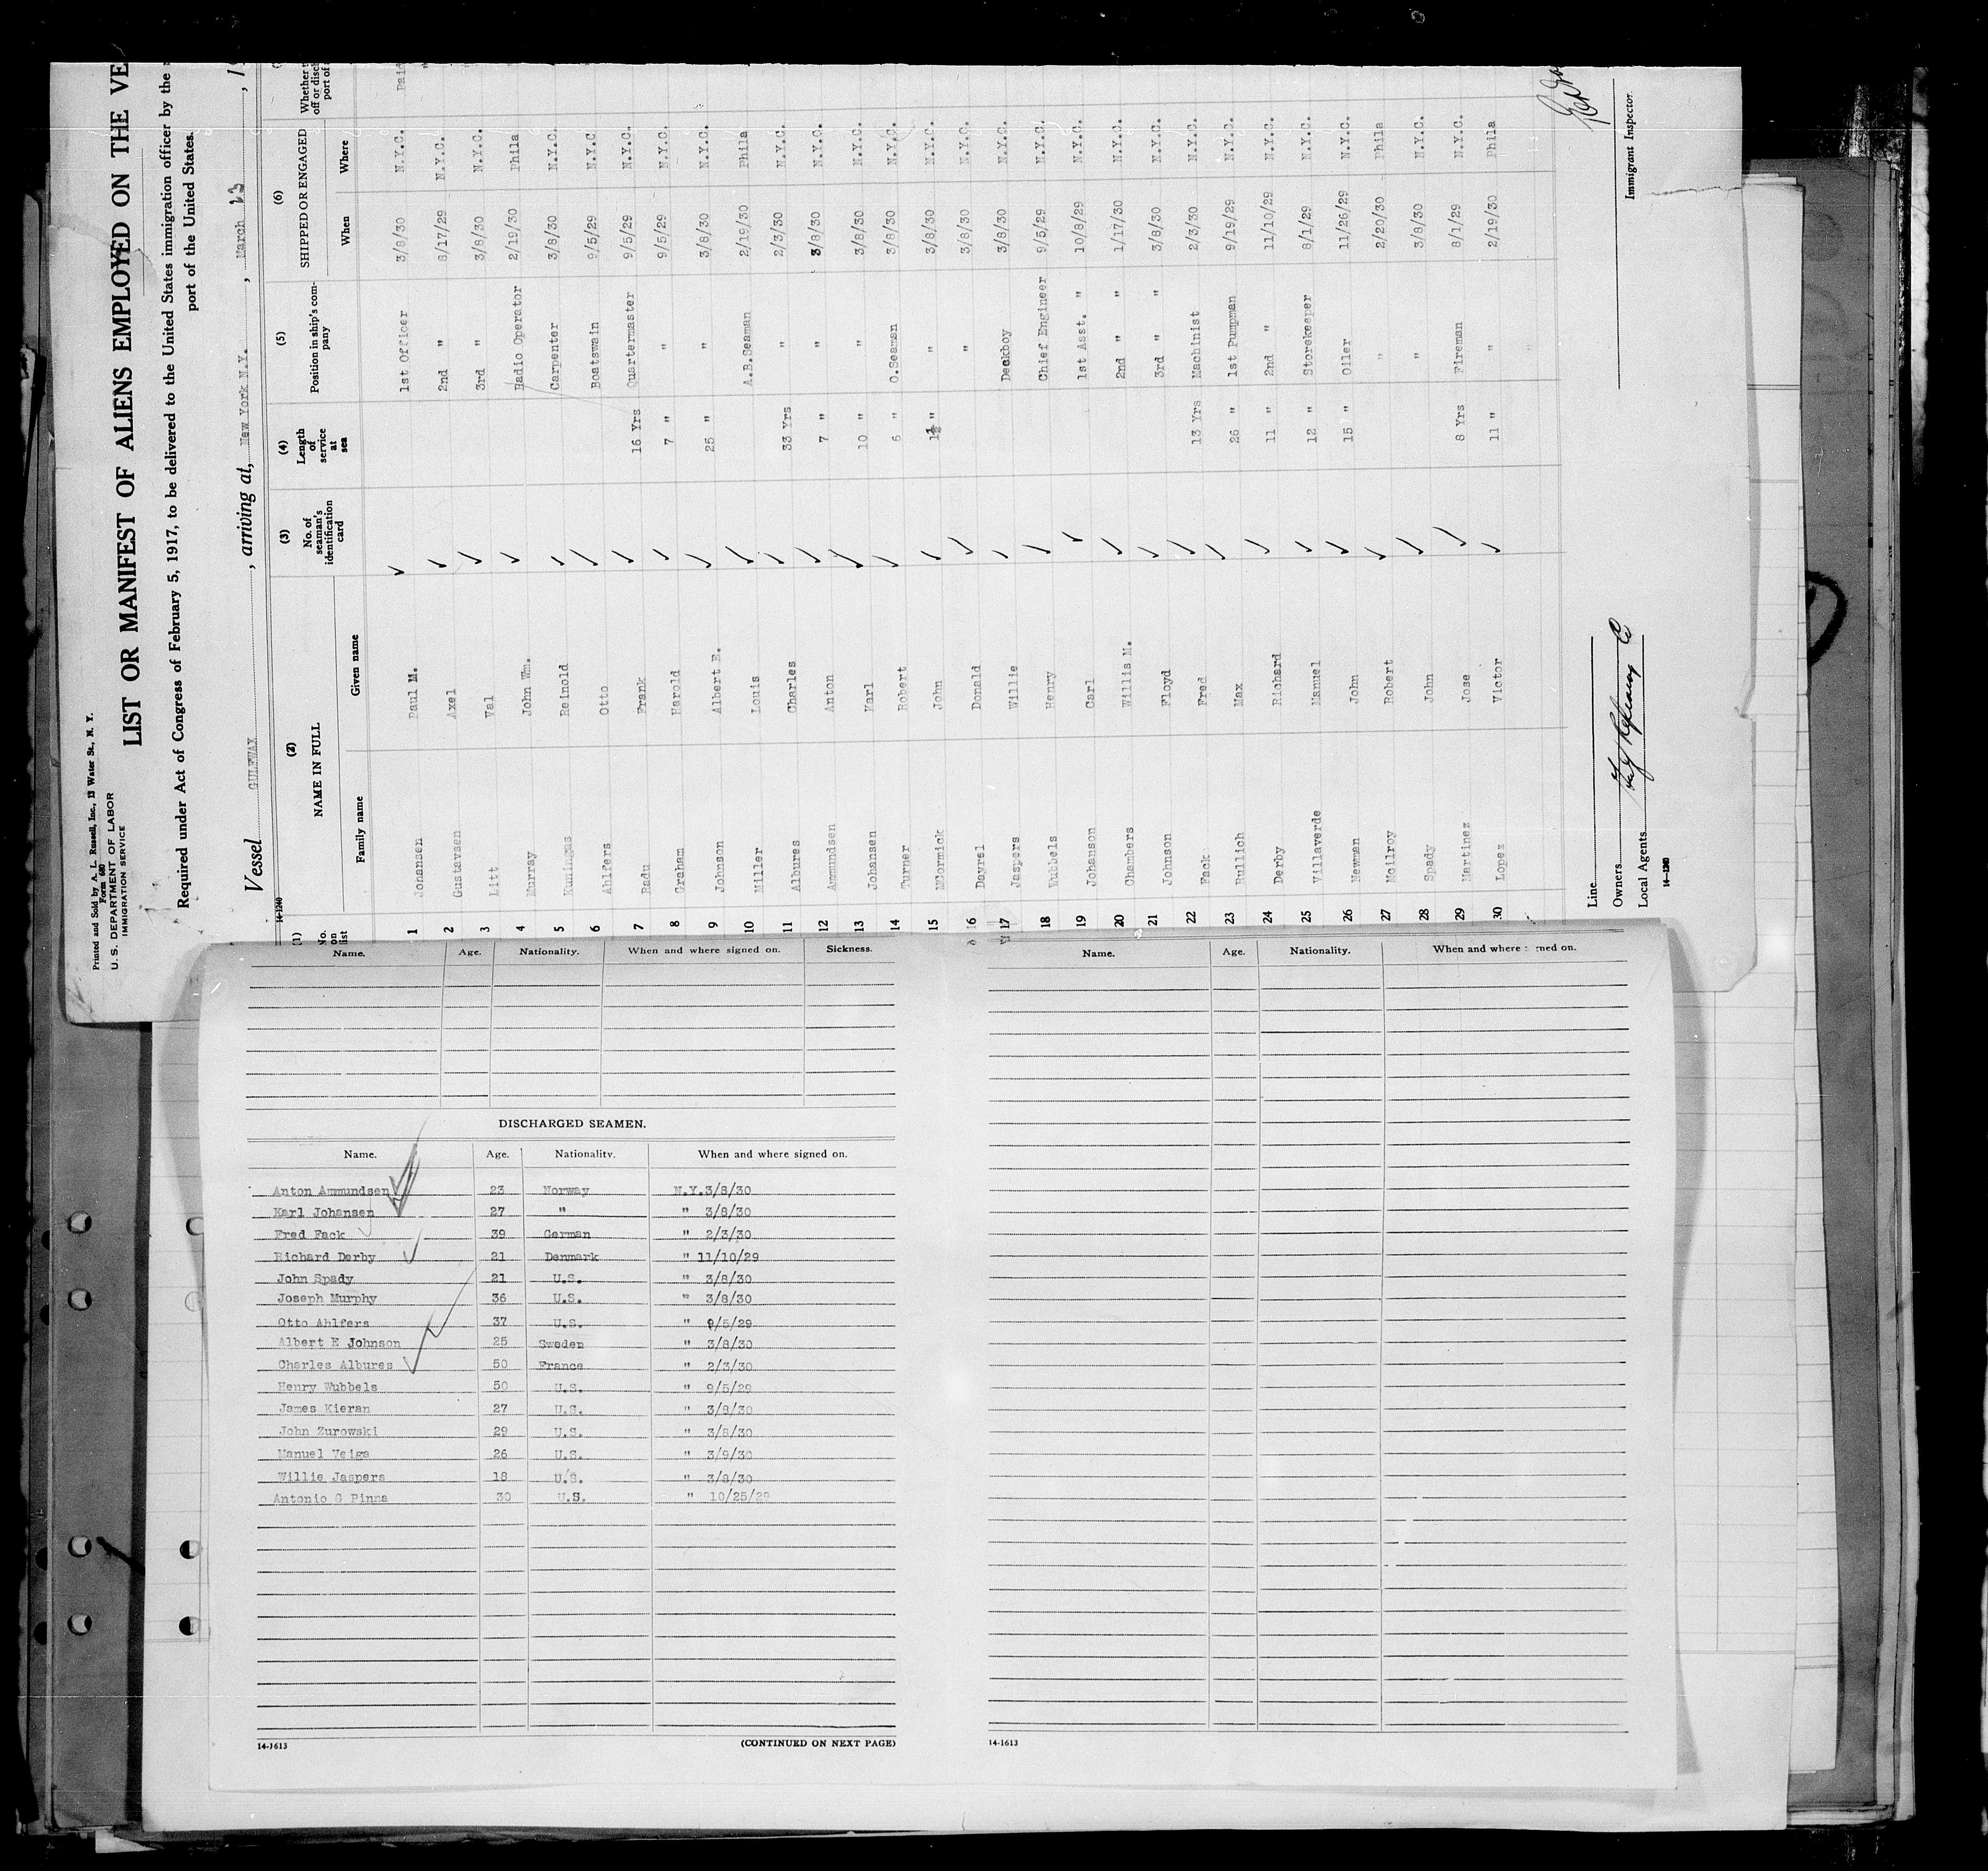 Printed and Sold by A. L. Russell, Inc., 13 Water St., N. Y.
Form 680
U. S. DEPARTMENT OF LABOR
IMMIGRATION SERVICE
LIST OR MANIFEST OF ALIENS EMPLOYED ON THE VE
Required under Act of Congress of February 5, 1917, to be delivered to the United States immigration officer by the
port of the United States.
Vessel GULFWAX , arriving at, New York N.Y. , March 23 , 1
14-1240
(1) No. on list (2) NAME IN FULL Family name Given name (3) No. of seaman's identification card (4) Length of service at sea (5) Position in ship's company (6) SHIPPED OR ENGAGED When Where Whether off or disch port of
1 Johansen Paul M. 1st Officer 3/8/30 N.Y.C. Paid
2 Gustavsen Axel 2nd " 8/17/29 N.Y.C. "
3 Litt Val 3rd " 3/8/30 N.Y.C.
4 Murray John Wm. Radio Operator 2/19/30 Phila
5 Kuningas Reinold Carpenter 3/8/30 N.Y.C.
6 Ahlfers Otto Boatswain 9/5/29 N.Y.C
7 Radu Frank 16 Yrs Quartermaster 9/5/29 N.Y.C.
8 Graham Harold 7 " " 9/5/29 N.Y.C.
9 Johnson Albert E. 25 " " 3/8/30 N.Y.C.
10 Miller Louis A.B.Seaman 2/19/30 Phila
11 Albures Charles 33 Yrs " 2/3/30 N.Y.C.
12 Ammundsen Anton 7 " " 3/8/30 N.Y.C.
13 Johansen Karl 10 " " 3/8/30 N.Y.C.
14 Turner Robert 6 " O.Seaman 3/8/30 N.Y.C.
15 McCormick John 1½ " " 3/8/30 N.Y.C.
16 Dayrel Donald " 3/8/30 N.Y.C.
17 Jaspers Willie Deckboy 3/8/30 N.Y.C.
18 Wubbels Henry Chief Engineer 9/5/29 N.Y.C.
19 Johanson Carl 1st Asst. " 10/8/29 N.Y.C.
20 Chambers Willis M. 2nd " " 1/17/30 N.Y.C.
21 Johnson Floyd 3rd " " 3/8/30 N.Y.C.
22 Fack Fred 13 Yrs Machinist 2/3/30 N.Y.C.
23 Hullich Max 26 " 1st Pumpman 9/19/29 N.Y.C.
24 Derby Richard 11 " 2nd " 11/10/29 N.Y.C.
25 Villaverde Manuel 12 " Storekeeper 8/1/29 N.Y.C.
26 Newman John 15 " Oiler 11/26/29 N.Y.C.
27 McIlroy Robert " 2/20/30 Phila
28 Spady John " 3/8/30 N.Y.C.
29 Martinez Jose 8 Yrs Fireman 8/1/29 N.Y.C.
30 Lopez Victor 11 " " 2/19/30 Phila
Immigrant Inspector.
Line
Owners Gulf Refining Co
Local Agents
14-1240
Name. Age. Nationality. When and where signed on. Sickness.
DISCHARGED SEAMEN.
Name. Age. Nationality. When and where signed on.
Anton Ammundsen 23 Norway N.Y.3/8/30
Karl Johansen 27 " " 3/8/30
Fred Fack 39 German " 2/3/30
Richard Derby 21 Denmark " 11/10/29
John Spady 21 U.S. " 3/8/30
Joseph Murphy 36 U.S. " 3/8/30
Otto Ahlfers 37 U.S. " 9/5/29
Albert E Johnson 25 Sweden " 3/8/30
Charles Albures 50 France " 2/3/30
Henry Wubbels 50 U.S. " 9/5/29
James Kieran 27 U.S. " 3/8/30
John Zurowski 29 U.S. " 3/8/30
Manuel Veiga 26 U.S. " 3/8/30
Willie Jaspers 18 U.S. " 3/8/30
Antonio G Pinna 30 U.S. " 10/25/29
14-1613
(CONTINUED ON NEXT PAGE)
Name. Age. Nationality. When and where signed on.
14-1613